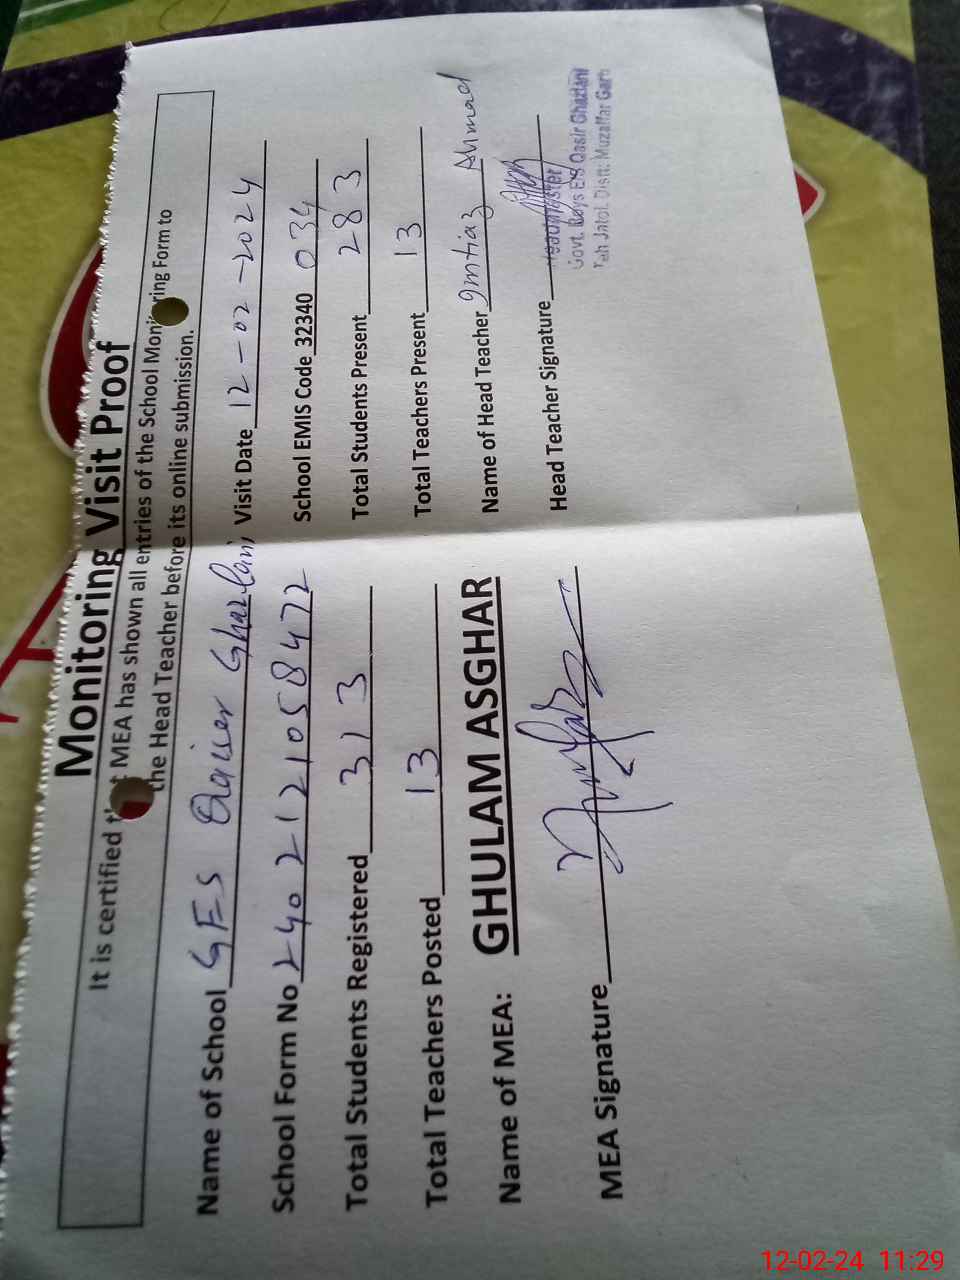 Monitoring Visit Proof
It is certified that MEA has shown all entries of the School Monitoring Form to
the Head Teacher before its online submission.
Name of School GES Qaiser Ghazlani Visit Date 12-02-2024
School Form No 2402121058472 School EMIS Code 32340 034
Total Students Registered 313 Total Students Present 283
Total Teachers Posted 13 Total Teachers Present 13
Name of MEA: GHULAM ASGHAR Name of Head Teacher Imtiaz Ahmad
MEA Signature Head Teacher Signature
Headmaster
Govt. Boys E/S Qasir Ghazlani
Teh Jatoi. Distt: Muzaffar Garh
12-02-24 11:29